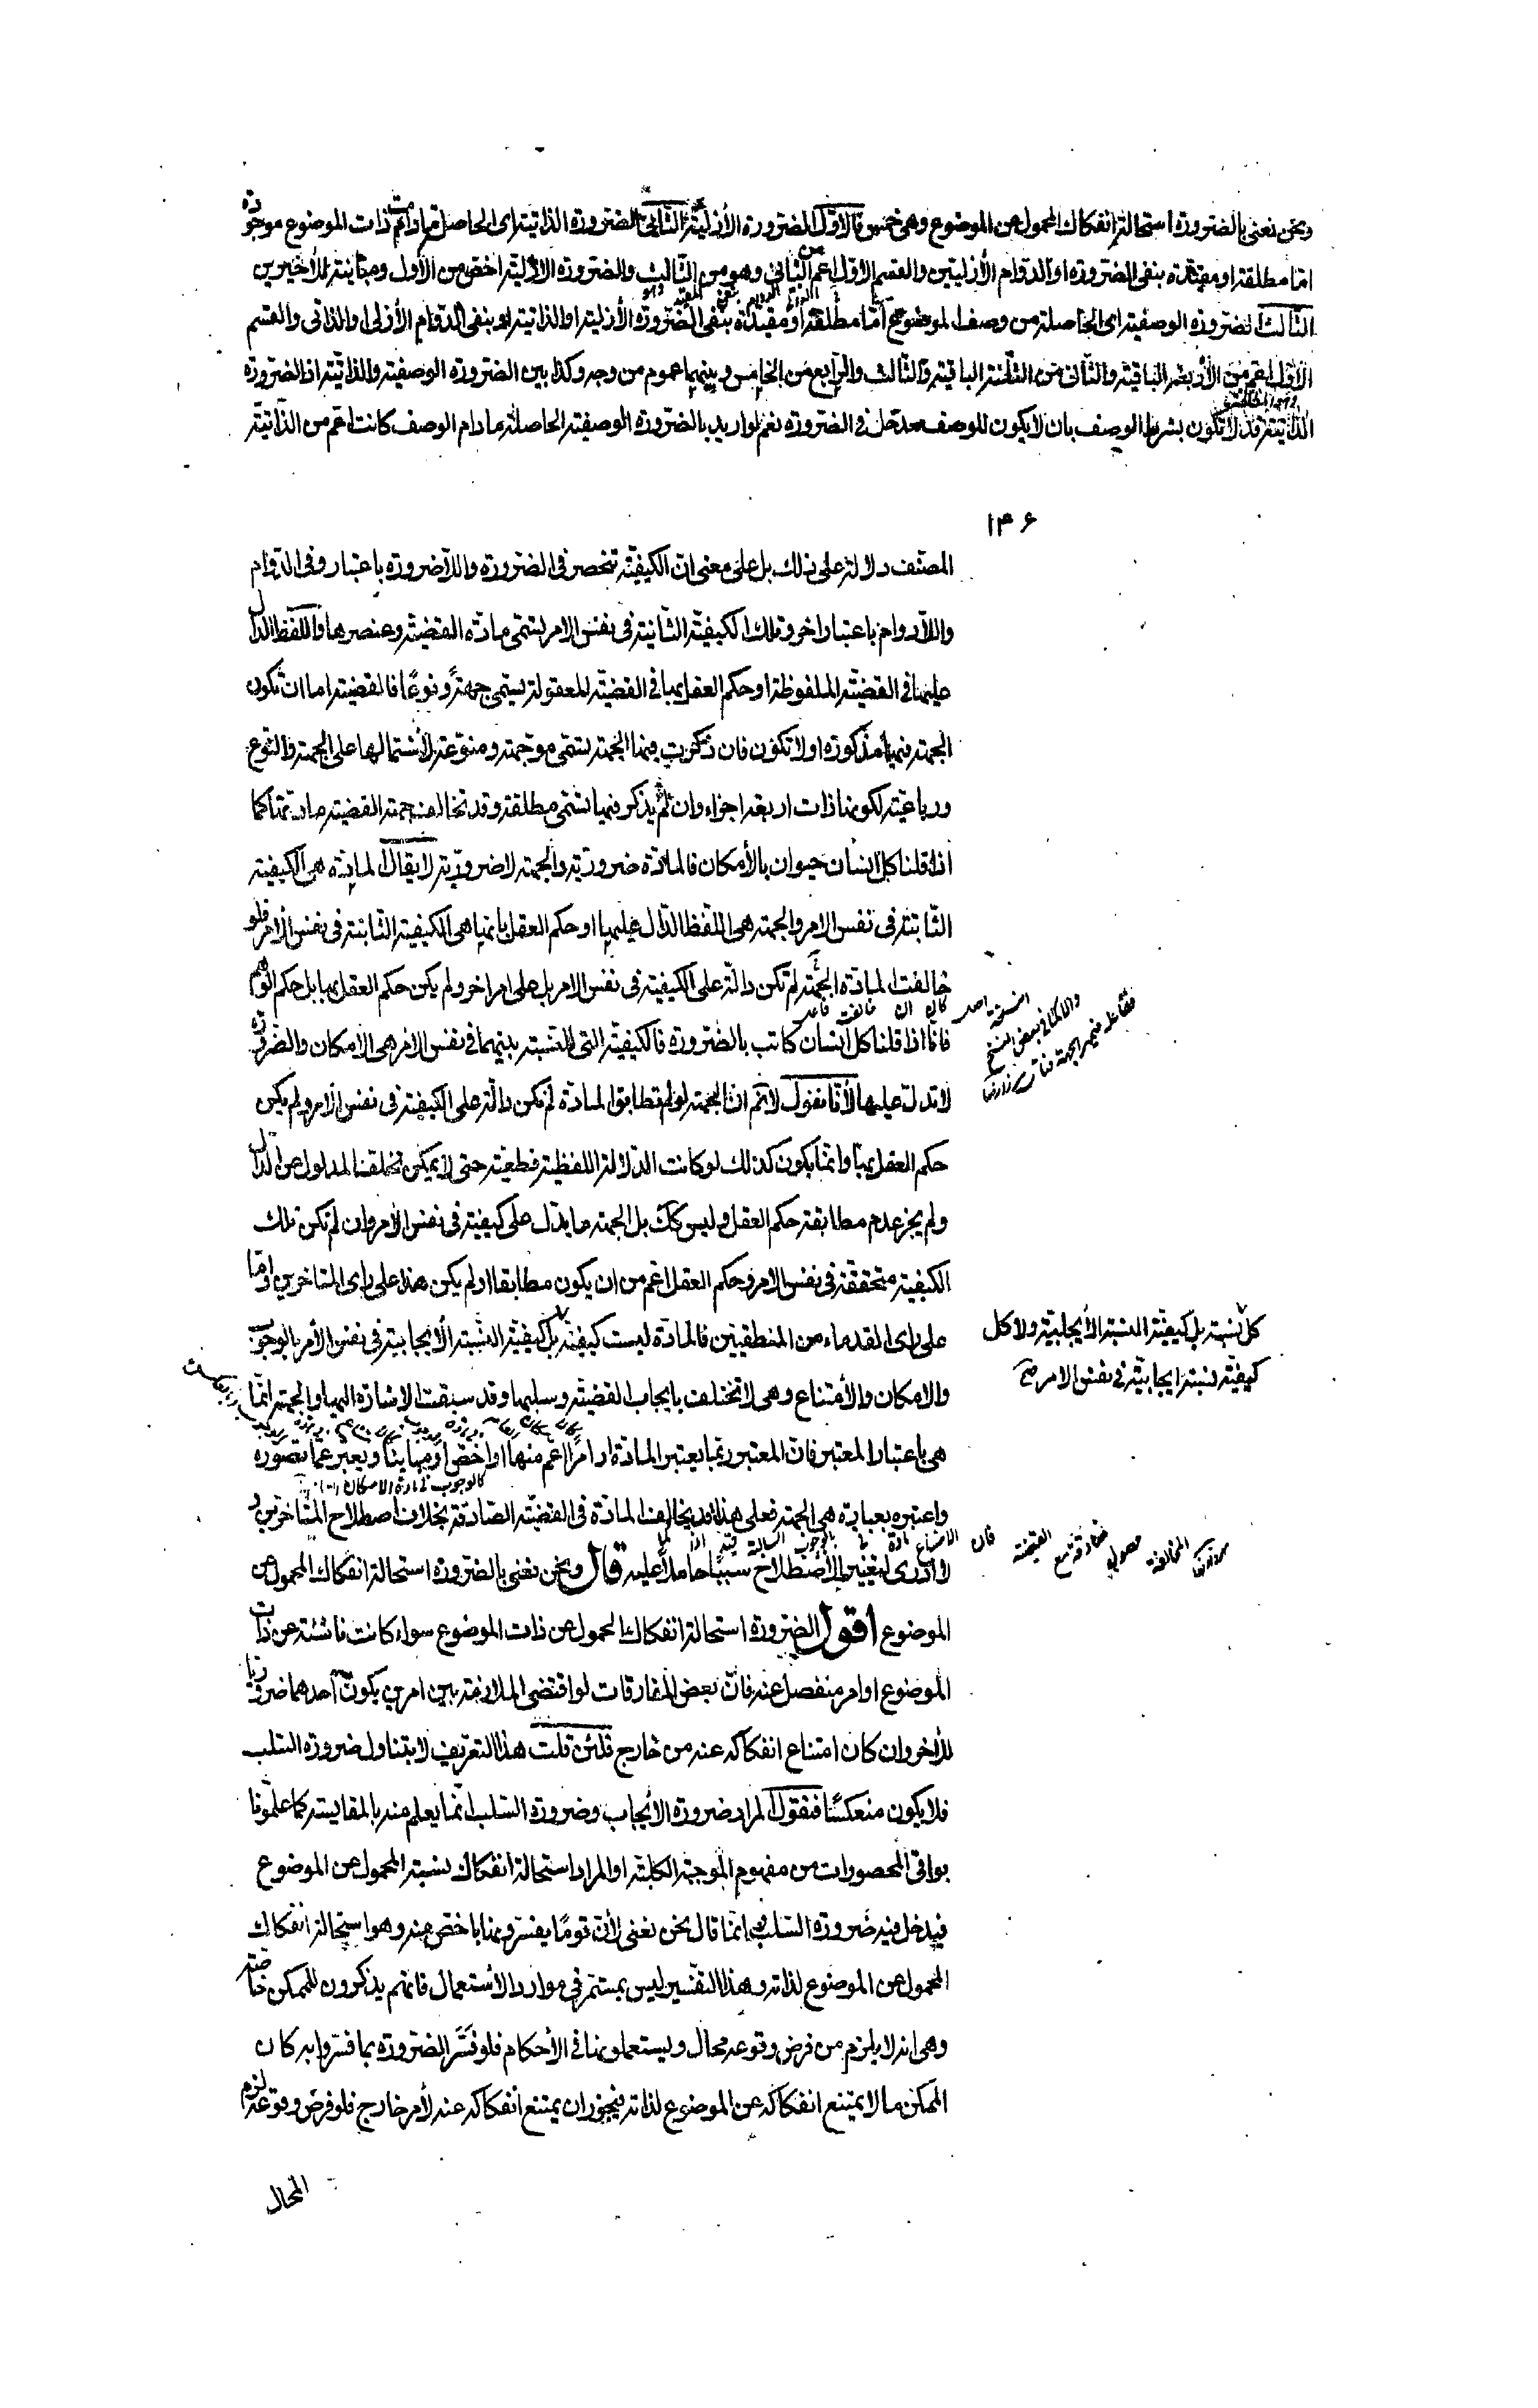 ونحن نعنى بالضرورة استحالة انفكاك المحمول عن الموضوع وهى خمس فالاول الضرورة الأزلية الثانى الضرورة الذاتية اى الحاصلة مادامت ذات الموضوع موجودة
امّا مطلقة او مقيّدة بنفى الضرورة او الدوام الأزليتين والقسم الاول اعم من الثانى وهو من الثالث والضرورة الازلية اخص من الأول ومباينة للأخيرين
الثالث الضرورة الوصفية اى الحاصلة من وصف الموضوع امّا مطلقة او مقيدة بنفى الضرورة الأزلية او الذاتية او بنفى الدوام الأزلى او الذاتى والقسم
الاول اعم من الأربعة الباقية والثانى من الثلثة الباقية والثالث والرابع من الخامس وبينهما عموم من وجه وكذا بين الضرورة الوصفية والذاتية اذ الضرورة
الذاتية قد لا تكون بشرط الوصف بان لا يكون للوصف مدخل فى الضرورة نعم لو اريد بالضرورة الوصفية الحاصلة مادام الوصف كانت اعم من الذاتية
۱۴۶
المصنف دلالة على ذلك بل على معنى ان الكيفية تنحصر فى الضرورة واللاضرورة باعتبار وفى الدوام
واللادوام باعتبار اخر وتلك الكيفية الثابتة فى نفس الامر تسمّى مادة القضية وعنصرها واللفظ الدال
عليها فى القضية الملفوظة او حكم العقل بها فى القضية المعقولة تسمى جهةً ونوعًا فالقضية اما ان تكون
الجهة فيها مذكورة او لا تكون فان ذكرت فيها الجهة تسمّى موجهة ومنوعة لأشتمالها على الجهة والنوع
ورباعية لكونها ذات اربعة اجزاء وان لم يذكر فيها تسمّى مطلقة وقد تخالف جهة القضية مادتها كما
اذا قلنا كل انسان حيوان بالأمكان فالمادة ضرورية والجهة لا ضرورية لا يقال المادة هى الكيفية
الثابتة فى نفس الامر والجهة هى اللفظ الدال عليها او حكم العقل بانها هى الكيفية الثابتة فى نفس الامر فلو
خالفت المادة الجهة لم تكن دالة على الكيفية فى نفس الامر بل على امر اخر ولم يكن حكم العقل بها بل حكم الوهم
فانا اذا قلنا كل انسان كاتب بالضرورة فالكيفية التى للنسبة بينهما فى نفس الامر هى الامكان والضرورة
لا تدل عليها لأنا نقول لا نم ان الجهة لو لم تطابق المادة لم تكن دالة على الكيفية فى نفس الامر ولم يكن
حكم العقل بها وانما يكون كذلك لو كانت الدلالة اللفظية قطعية حتى لا يمكن تخلف المدلول عن الدال
ولم يجز عدم مطابقة حكم العقل وليس كك بل الجهة ما يدل على كيفية فى نفس الامر وان لم تكن تلك
الكيفية متحققة فى نفس الامر وحكم العقل اعم من ان يكون مطابقا او لم يكن هذا على راى المتاخرين وامّا
على راى القدماء من المنطقيين فالمادة ليست كيفية بل كيفية النسبة الأيجابية فى نفس الأمر بالوجوب
كل نسبة بل كيفية النسبة الأيجابية ولا كل
كيفية نسبة ايجابية فى نفس الامر صح
والامكان والأمتناع وهى لا تختلف بايجاب القضية وسلبها وقد سبقت الاشارة اليها والجهة انمّا
هى باعتبار المعتبر فان المعتبر ربما يعتبر المادة او امرًا اعم منها او اخص او مباينًا ويعبر عما تصوره
واعتبره بعبارة هى الجهة فعلى هذا قد يخالف المادة فى القضية الصادقة بخلاف اصطلاح المتاخرين و
لا ادرى لتغيير الأصطلاح سببًا حاملا عليه قال ونحن نعنى بالضرورة استحالة انفكاك المحمول عن
الموضوع اقول الضرورة استحالة انفكاك المحمول عن ذات الموضوع سواء كانت ناشئة عن ذات
الموضوع او امر منفصل عنه فان بعض المفارقات لو اقتضى الملازمة بين امرين يكون احدهما ضروريا
للأخر وان كان امتناع انفكاكه عنه من خارج فلئن قلت هذا التعريف لا يتناول ضرورة السلب
فلا يكون منعكسًا فنقول المراد ضرورة الأيجاب وضرورة السلب انمّا يعلم منه بالمقايسة كما علمونا
بواقى المحصورات من مفهوم الموجبة الكلية او المراد استحالة انفكاك نسبة المحمول عن الموضوع
فيدخل فيه ضرورة السلب وانما قال نحن نعنى لأن قومًا يفسرونها باخص منه وهو استحالة انفكاك
المحمول عن الموضوع لذاته وهذا التفسير ليس بمستمر فى موارد الأستعمال فانهم يذكرون للممكن خاصة
وهى انه لا يلزم من فرض وقوعه محال ويستعملونها فى الأحكام فلو فسّر الضرورة بما فسّروا به كان
الممكن ما لا يمتنع انفكاكه عن الموضوع لذاته فيجوز ان يمتنع انفكاكه عنه لأمر خارج فلو فرض وقوعه لزم
المحال